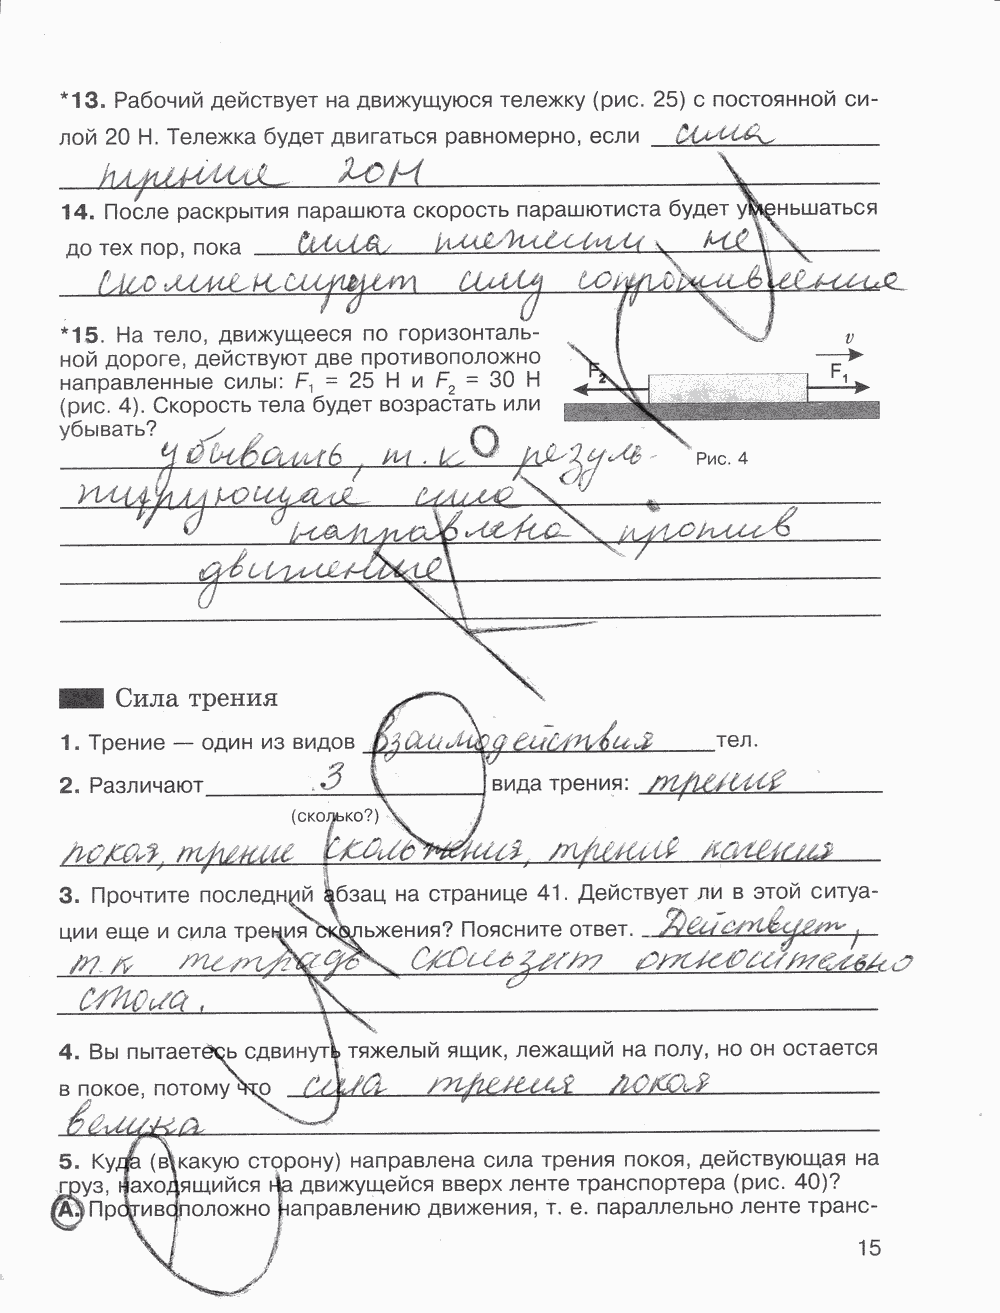 *13. Рабочий действует на движущуюся тележку (рис. 25) с постоянной си-
лой 20 Н. Тележка будет двигаться равномерно, если сила
трения 20Н
14. После раскрытия парашюта скорость парашютиста будет уменьшаться
до тех пор, пока сила тяжести не
скомпенсирует силу сопротивления
*15. На тело, движущееся по горизонталь-
ной дороге, действуют две противоположно
направленные силы: F1 = 25 Н и F2 = 30 Н
(рис. 4). Скорость тела будет возрастать или
убывать?
v
F2 F1
Рис. 4
убывать, т.к резуль-
тирующая сила
направлена против
движения
Сила трения
1. Трение — один из видов взаимодействия тел.
2. Различают 3 вида трения: трения
(сколько?)
покоя, трение скольжения, трения качения
3. Прочтите последний абзац на странице 41. Действует ли в этой ситуа-
ции еще и сила трения скольжения? Поясните ответ. Действует,
т.к тетрадь скользит относительно
стола.
4. Вы пытаетесь сдвинуть тяжелый ящик, лежащий на полу, но он остается
в покое, потому что сила трения покоя
велика
5. Куда (в какую сторону) направлена сила трения покоя, действующая на
груз, находящийся на движущейся вверх ленте транспортера (рис. 40)?
А. Противоположно направлению движения, т. е. параллельно ленте транс-
15